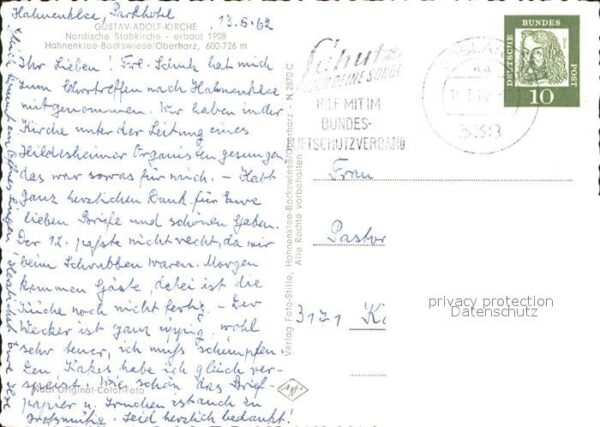 Hahnenklee, Parkhotel 13.5.62
GUSTAV-ADOLF-KIRCHE
Nordische Stabkirche - erbaut 1908
Hahnenklee-Bockswiese/Oberharz, 600-726 m
Ihr Lieben! Frl. Schulz hat mich
zum Chortreffen nach Hahnenklee
mitgenommen. Wir haben in der
Kirche unter der Leitung eines
Hildesheimer Organisten gesungen,
das war sowas für mich. – Habt
ganz herzlichen Dank für Eure
lieben Briefe und schönen Gaben.
Der 12. paßte nicht recht, da wir
beim Schrubben waren. Morgen
kommen Gäste, dabei ist die
Küche noch nicht fertig. – Der
Wecker ist ganz üppig, wohl
sehr teuer, ich muß schimpfen.
Den Kakes habe ich gleich ver-
speist. Wie schön das Brief-
Agfa Original-Color-Foto
papier u. Irmchen ist auch zu
großmütig. Seid herzlich bedankt!
Verlag Foto-Stille, Hahnenklee-Bockswiese/Oberharz - N 2870 C
Alle Rechte vorbehalten
Agfa
Schutz
HILF MIT IM
BUNDES-
LUFTSCHUTZVERBAND
GOSLAR
338
DEUTSCHE BUNDESPOST
10
Frau
Pastor
3171 Ki
privacy protection
Datenschutz